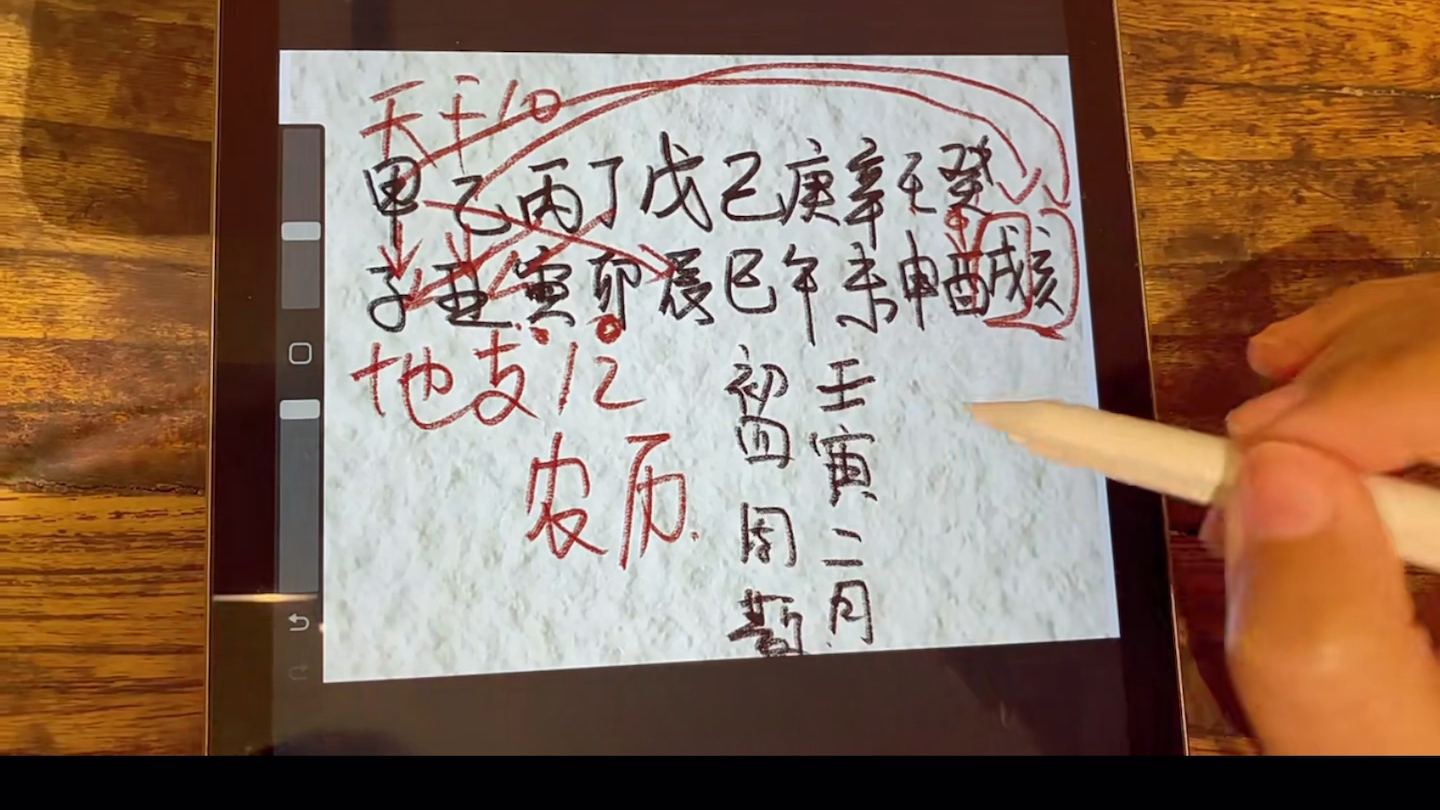 天干10
甲乙丙丁戊己庚辛壬癸
子丑寅卯辰巳午未申酉戌亥
地支12
农历
壬寅二月
初四周